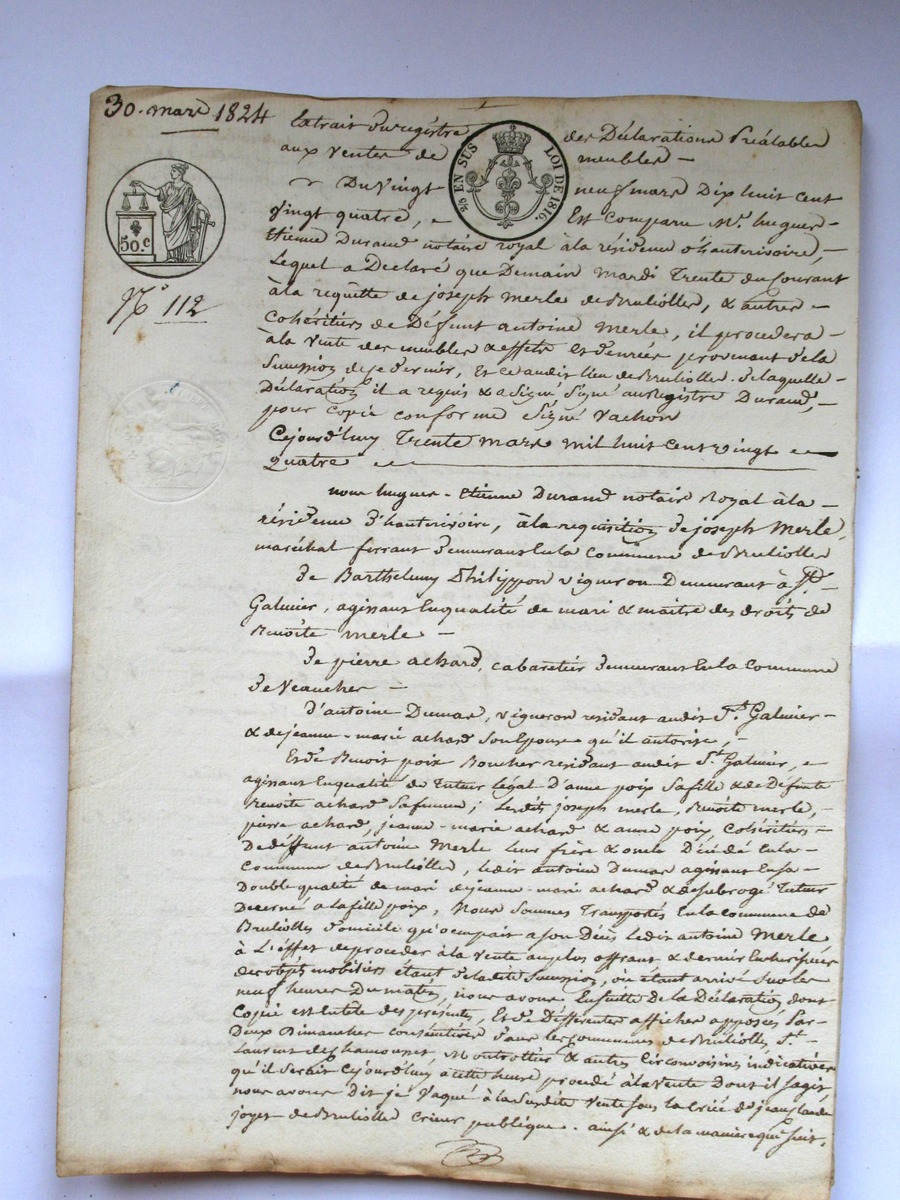 30. mars 1824
Extrait du registre des Déclarations Préalables
aux ventes de meubles —
EN SUS LOI DE 1816.
50.c
N.° 112
Du Vingt neuf mars Dix huit cent
vingt quatre, Est Comparu M.r hugues-
Etienne Durand notaire royal à la résidence d'hauterivoire,
Lequel a Déclaré que Demain Mardi Trente du Courant
à la requête de joseph Merle de Brulioles, & autres
Cohéritiers de Défunt antoine Merle, il procedera
à la vente des meubles & effets Et denrées provenant de la
Succession de ce dernier, Et ce audit lieu de Bruliolle. de laquelle
Déclaration il a requis & a Signé Signé au registre Durand,
pour copie conforme Signé Vachon
Cejourd'huy Trente mars mil huit cent vingt
quatre
nous hugues-Etienne Durand notaire Royal à la
résidence d'hauterivoire, à la requisition de joseph Merle,
maréchal ferrant demeurant En la Commune de Brulioles
De Barthelemy Philippon vigneron Demeurant à St.
Galmier, agissant En qualité de mari & maitre des droits de
Benoite Merle —
De pierre achard, cabaretier demeurant En la Commune
de Veauches —
d'antoine Dumas, vigneron residant audit St. Galmier
& de jeanne-marie achard Son Epouse qu'il autorise,
Et de Benoit poix Boucher residant audit St. Galmier,
agissant En qualité de Tuteur Légal D'anne poix Sa fille & de Défunte
Benoite achard Sa femme; Lesdits joseph merle, Benoite merle,
pierre achard, jeanne-marie achard & anne poix, Cohéritiers
De déffunt antoine Merle Leur frère & oncle Décédé En la
Commune de Bruliolles, ledit antoine Dumas agissant En sa
Double qualité de mari de jeanne-marie achard & de Subrogé Tuteur
Décerné a la fille poix, Nous Sommes Transportés En la commune de
Brulioles Domicile qu'occupait a son Décès Ledit antoine Merle,
à L'effet de proceder à la vente au plus offrant & dernier Encherisseur
des objets mobiliers étant de ladite Succession, où étant arrivé Sur les
neuf heures Du matin, nous avons Ensuite de la Déclaration dont
Copie est En tête des présentes, Et de Différentes affiches apposées par
Deux Dimanches consécutives dans les communes de Brulioles, St.
Laurent de Chamousset, Montrottier & autres Circonvoisines indicatives
qu'il Serait Cejourd'huy à cette heure procédé à la Vente Dont il sagit
nous avons Dit je Vaqué à la Susdite Vente Sous la Criée de jean claude
joyet de Bruliolle Crieur publique. ainsi & de la maniere qui Suit.